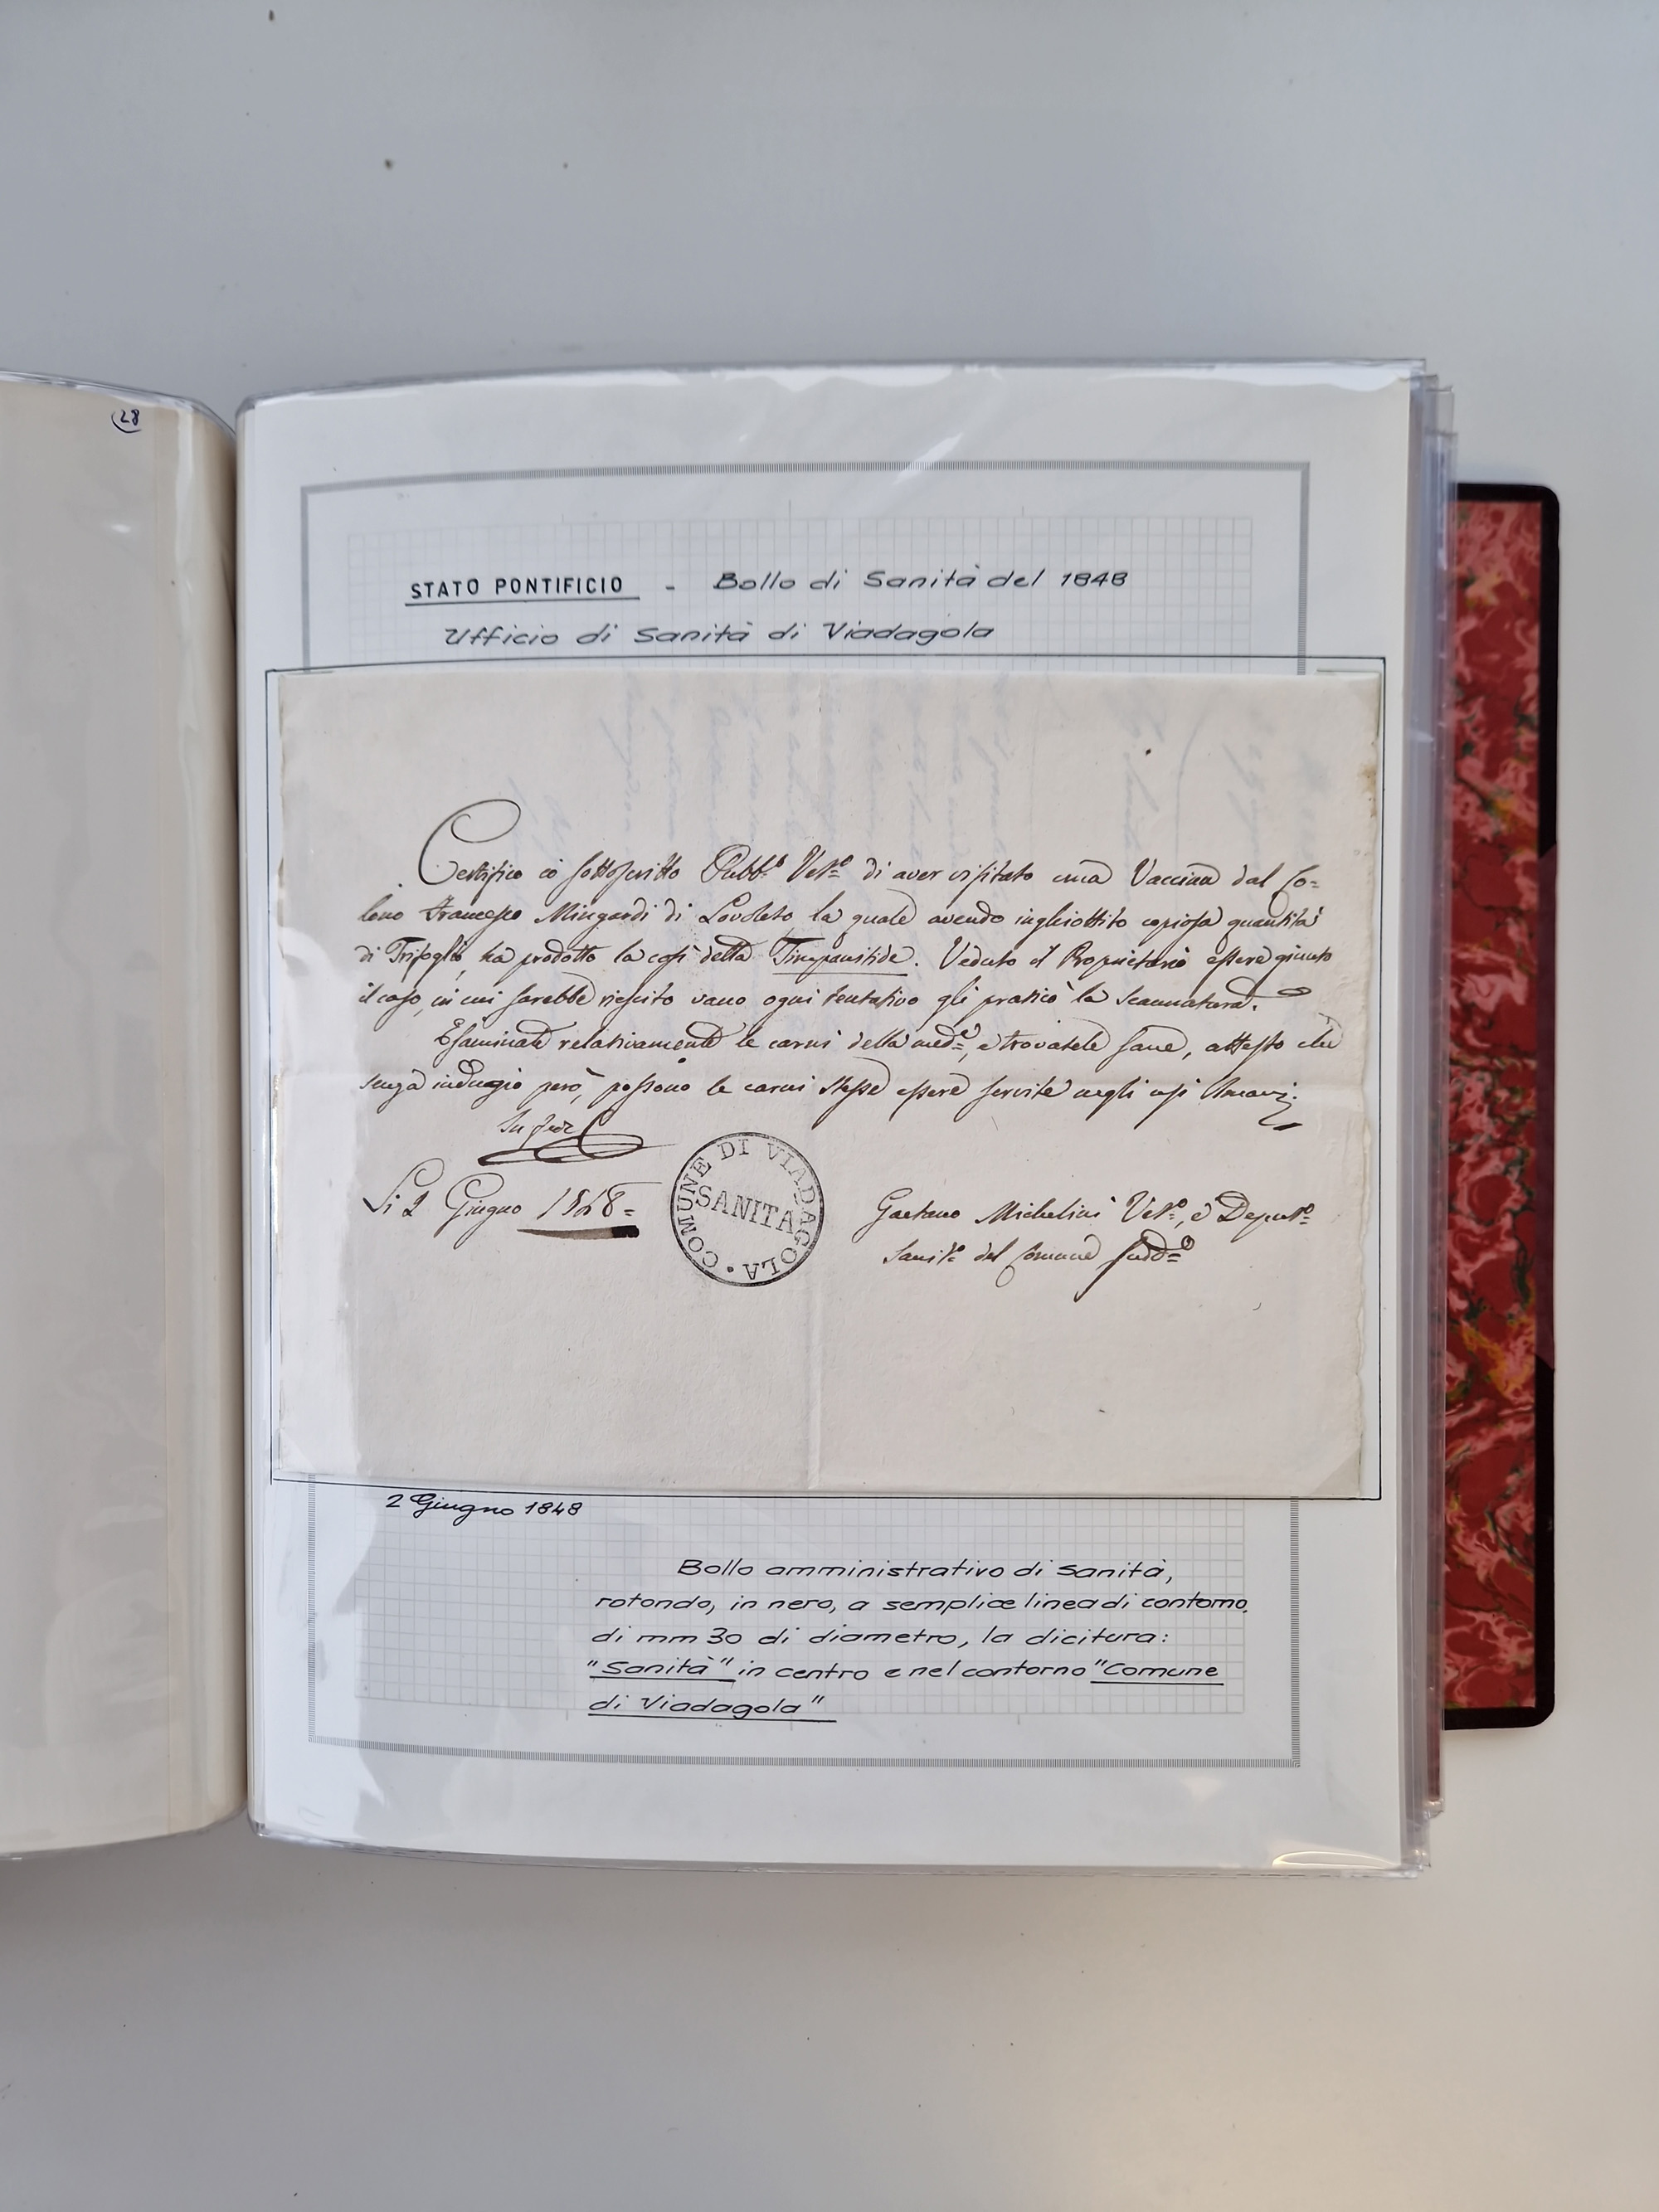 28
STATO PONTIFICIO - Bollo di Sanità del 1848
Ufficio di Sanità di Viadagola
Certifico io sottoscritto Pubb.º Vet.º di aver visitato una Vaccina dal Co=
lono Francesco Mingardi di Lovoleto, la quale avendo inghiottito copiosa quantità
di Trifoglio, ha prodotto la così detta Timpanitide. Veduto il Proprietario essere giunto
il caso, in cui sarebbe riescito vano ogni tentativo gli praticò la scannatura.
Esaminate relativamente le carni della med.ª, e trovatele sane, attesto che
senza indugio però, possono le carni stesse essere servite negli usi Umani.
In fede
Li 2 Giugno 1848=
COMUNE DI VIADAGOLA
SANITA
Gaetano Michelini Vet.º, e Deput.º
Sanit.º del Comune sudd.º
2 Giugno 1848
Bollo amministrativo di Sanità,
rotondo, in nero, a semplice linea di contorno,
di mm 30 di diametro, la dicitura:
"Sanità" in centro e nel contorno "Comune
di Viadagola"